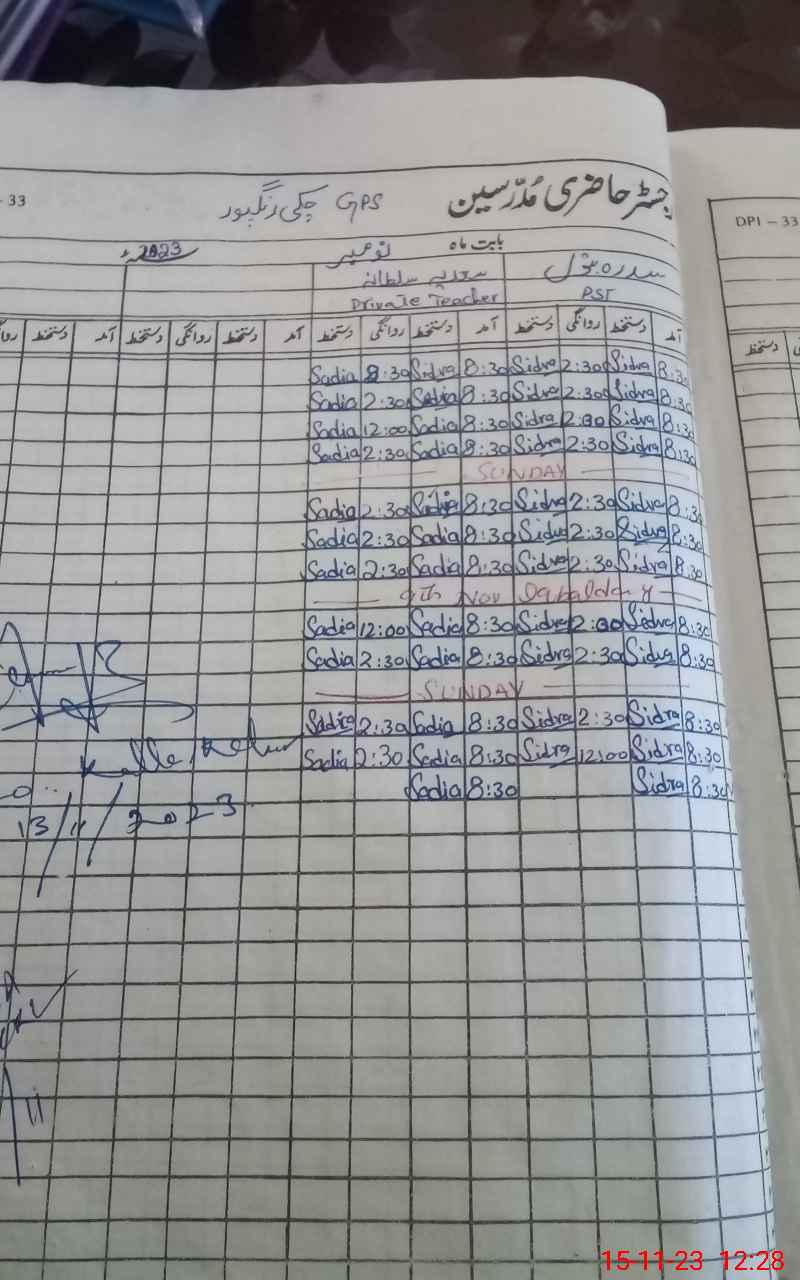 رجسٹر حاضری مُدرّسین GPS چکی رنگپور - 33
DPI - 33
بابت ماہ نومبر 2023ء
سدرہ بتول سعدیہ سلطانہ
PST Private Teacher
آمد دستخط روانگی دستخط آمد دستخط روانگی دستخط آمد دستخط روانگی دستخط آمد دستخط
دستخط
Sadia 8:30 Sidra 8:30 Sidra 2:30 Sidra 8:30
Sadia 2:30 Sadia 8:30 Sidra 2:30 Sidra 8:30
Sadia 12:00 Sadia 8:30 Sidra 2:00 Sidra 8:30
Sadia 2:30 Sadia 8:30 Sidra 2:30 Sidra 8:30
SUNDAY
Sadia 2:30 Sadia 8:30 Sidra 2:30 Sidra 8:30
Sadia 2:30 Sadia 8:30 Sidra 2:30 Sidra 8:30
Sadia 2:30 Sadia 8:30 Sidra 2:30 Sidra 8:30
9th Nov Iqbal day
Sadia 12:00 Sadia 8:30 Sidra 2:00 Sidra 8:30
Sadia 2:30 Sadia 8:30 Sidra 2:30 Sidra 8:30
SUNDAY
Sadia 2:30 Sadia 8:30 Sidra 2:30 Sidra 8:30
Sadia 2:30 Sadia 8:30 Sidra 12:00 Sidra 8:30
Sadia 8:30 Sidra 8:30
13/11/2023
11
15-11-23 12:28